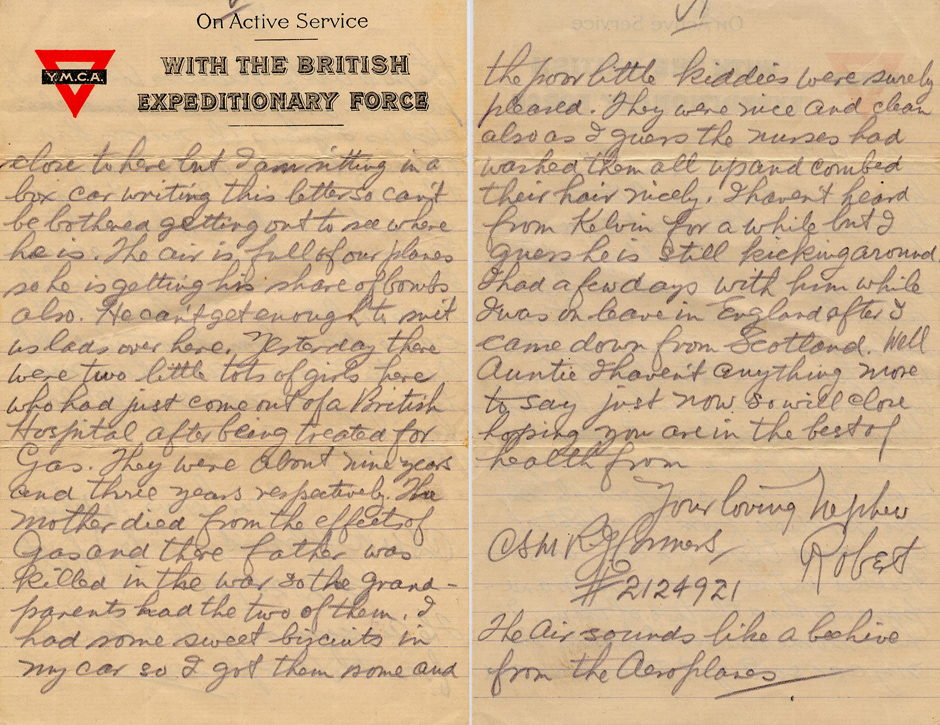 On Active Service
Y.M.C.A.
WITH THE BRITISH
EXPEDITIONARY FORCE
close to here but I am sitting in a
box car writing this letter so can't
be bothered getting out to see where
he is. The air is full of our planes
so he is getting his share of bombs
also. He can't get enough to suit
us lads over here. Yesterday there
were two little tots of girls here
who had just come out of a British
Hospital after being treated for
Gas. They were about nine years
and three years respectively. The
Mother died from the effects of
Gas and there father was
killed in the war so the grand-
parents had the two of them. I
had some sweet biscuits in
my car so I got them some and
the poor little kiddies were surely
pleased. They were nice and clean
also as I guess the nurses had
washed them all up and combed
their hair nicely. I haven't heard
from Kelvin for a while but I
guess he is still kicking around.
I had a few days with him while
I was on leave in England after I
came down from Scotland. Well
Auntie I haven't anything more
to say just now so will close
hoping you are in the best of
health from
Your loving Nephew
Robert
CSM R
#2124921
The Air sounds like a beehive
from the Aeroplanes